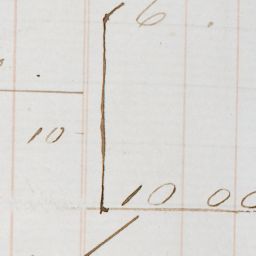 6
10
10 00